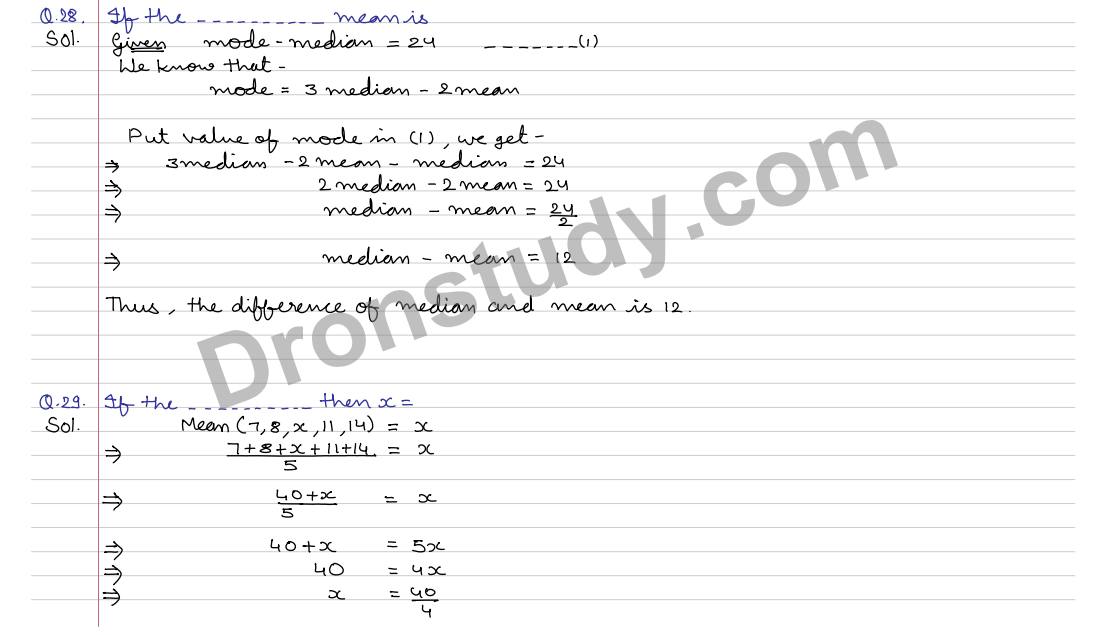 Q.28. If the _ _ _ _ _ _ _ _ _ _ mean is
Sol. Given mode - median = 24 _ _ _ _ _ _ _ (1)
We know that -
mode = 3 median - 2 mean
Put value of mode in (1), we get -
⇒ 3 median - 2 mean - median = 24
⇒ 2 median - 2 mean = 24
⇒ median - mean = 24/2
⇒ median - mean = 12
Thus, the difference of median and mean is 12.
Dronstudy.com
Q.29. If the _ _ _ _ _ _ _ _ _ _ then x =
Sol. Mean (7, 8, x, 11, 14) = x
⇒ 7+8+x+11+14/5 = x
⇒ 40+x/5 = x
⇒ 40+x = 5x
⇒ 40 = 4x
⇒ x = 40/4